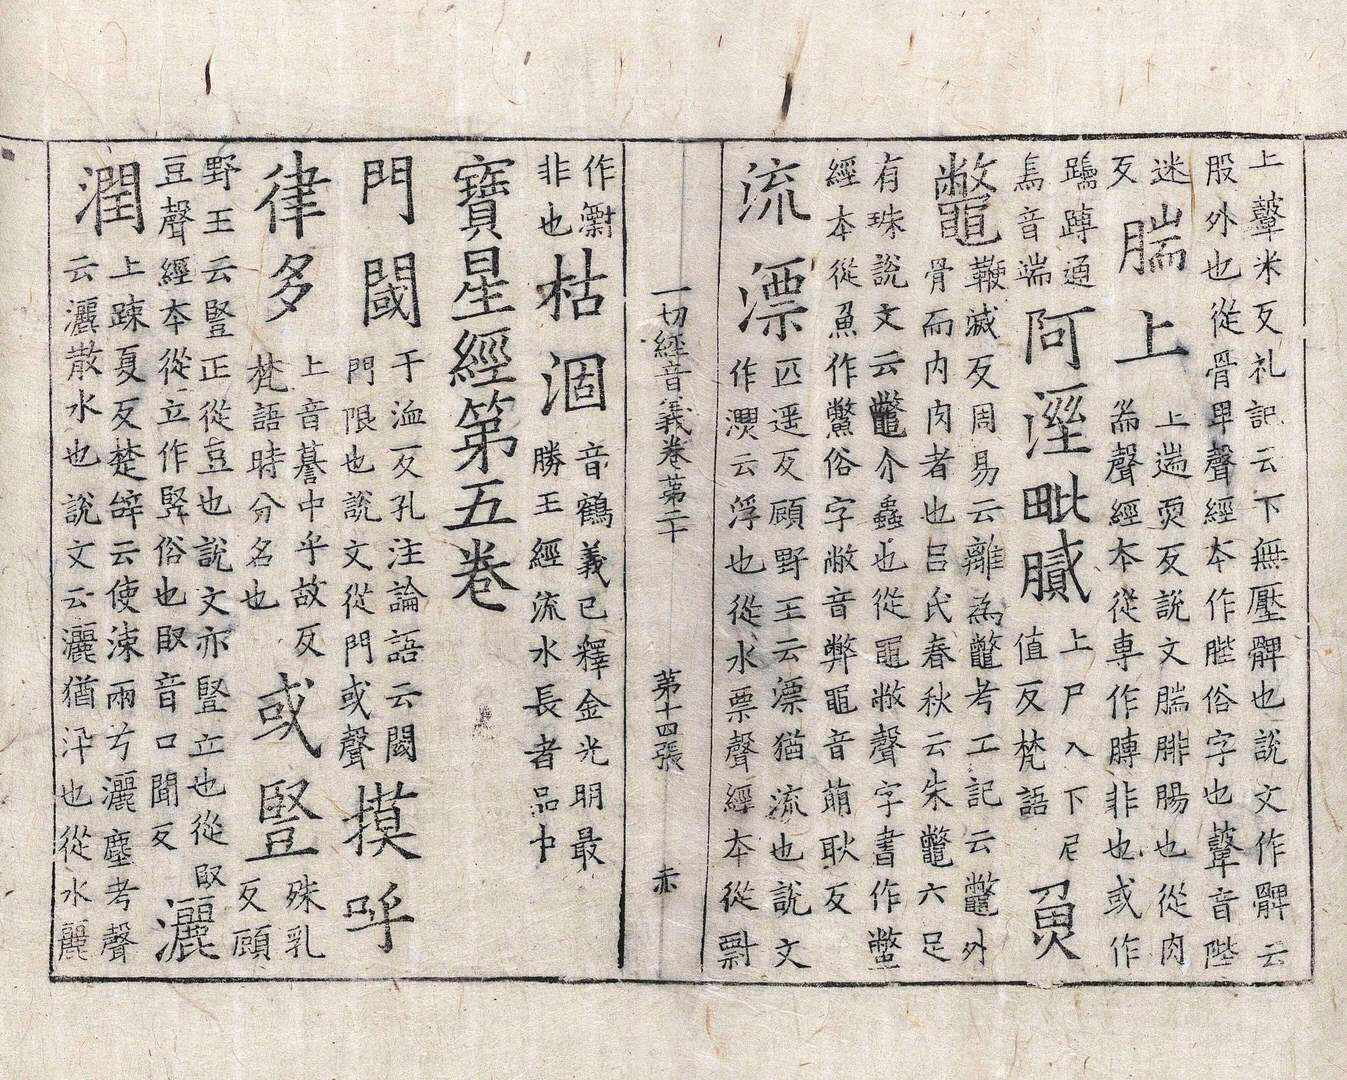 上鼙米反礼記云下無壓髀也說文作髀云
股外也從骨卑聲經本作䏶俗字也鼙音陛
迷反
腨上
上遄耎反說文腨腓腸也從肉
耑聲經本從專作膞非也或作
蹲通
𨄔音端
阿溼毗膩
上尸入下尼
值反梵語
魚
鼈
鞭滅反周易云離為鼈考工記云鼈外
骨而內肉者也呂氏春秋云朱鼈六足
有珠說文云鼈介蟲也從黽敝聲字書作鱉
經本從魚作鱉俗字敝音弊黽音萠耿反
流漂
匹遥反顧野王云漂猶流也說文
作㵱云浮也從水票聲經本從
一切經音義卷第二十 第十四張 赤
作
非也
枯涸
音鶴義已釋金光明最
勝王經流水長者品中
寶星經第五卷
門閾
于洫反孔注論語云閾
門限也說文從門或聲
摸呼
律多
上音謩中乎故反
梵語時分名也
或豎
殊乳
反顧
野王云豎正從豆也說文亦豎立也從臤
豆聲經本從立作竪俗也臤音口閒反
灑
潤
上踈夏反楚辝云使涷雨兮灑塵考聲
云灑散水也說文云灑猶汎也從水麗